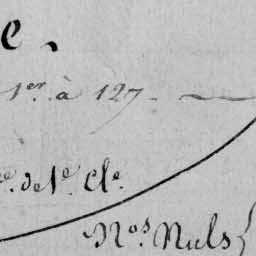 e.
1er. à 127.
e. de 1e. Cle.
Nos. Nuls